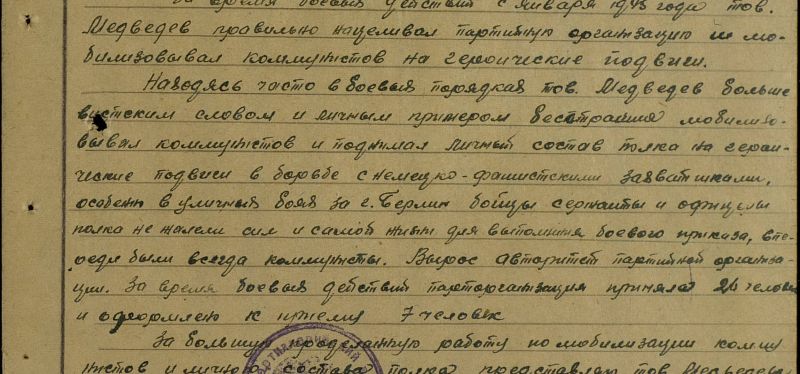 За время боевых действий с января 1945 года тов.
Медведев правильно нацеливал партийную организацию и мо-
билизовывал коммунистов на героические подвиги.
Находясь часто в боевых порядках тов. Медведев больше
вистским словом и личным примером бесстрашия мобилизо-
вывал коммунистов и поднимал личный состав полка на герои-
ческие подвиги в борьбе с немецко-фашистскими захватчиками,
особенно в уличных боях за г. Берлин бойцы сержанты и офицеры
полка не жалели сил и самой жизни для выполнения боевого приказа, впе-
реди были всегда коммунисты. Вырос авторитет партийной организа-
ции. За время боевых действий парторганизация приняла 24 человек
и оформлено к приему 7 человек
За большую проделанную работу по мобилизации комму
нистов и личного состава полка представляю тов. Медведева